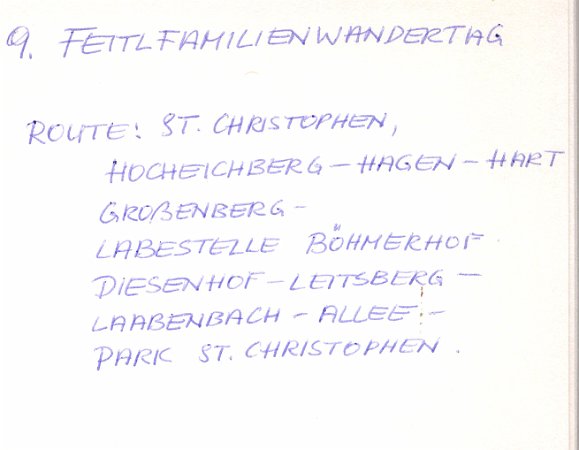 9. FEITLFAMILIENWANDERTAG
ROUTE: ST. CHRISTOPHEN,
HOCHEICHBERG – HAGEN – HART
GROßENBERG –
LABESTELLE BÖHMERHOF
DIESENHOF – LEITSBERG –
LAABENBACH – ALLEE –
PARK ST. CHRISTOPHEN.